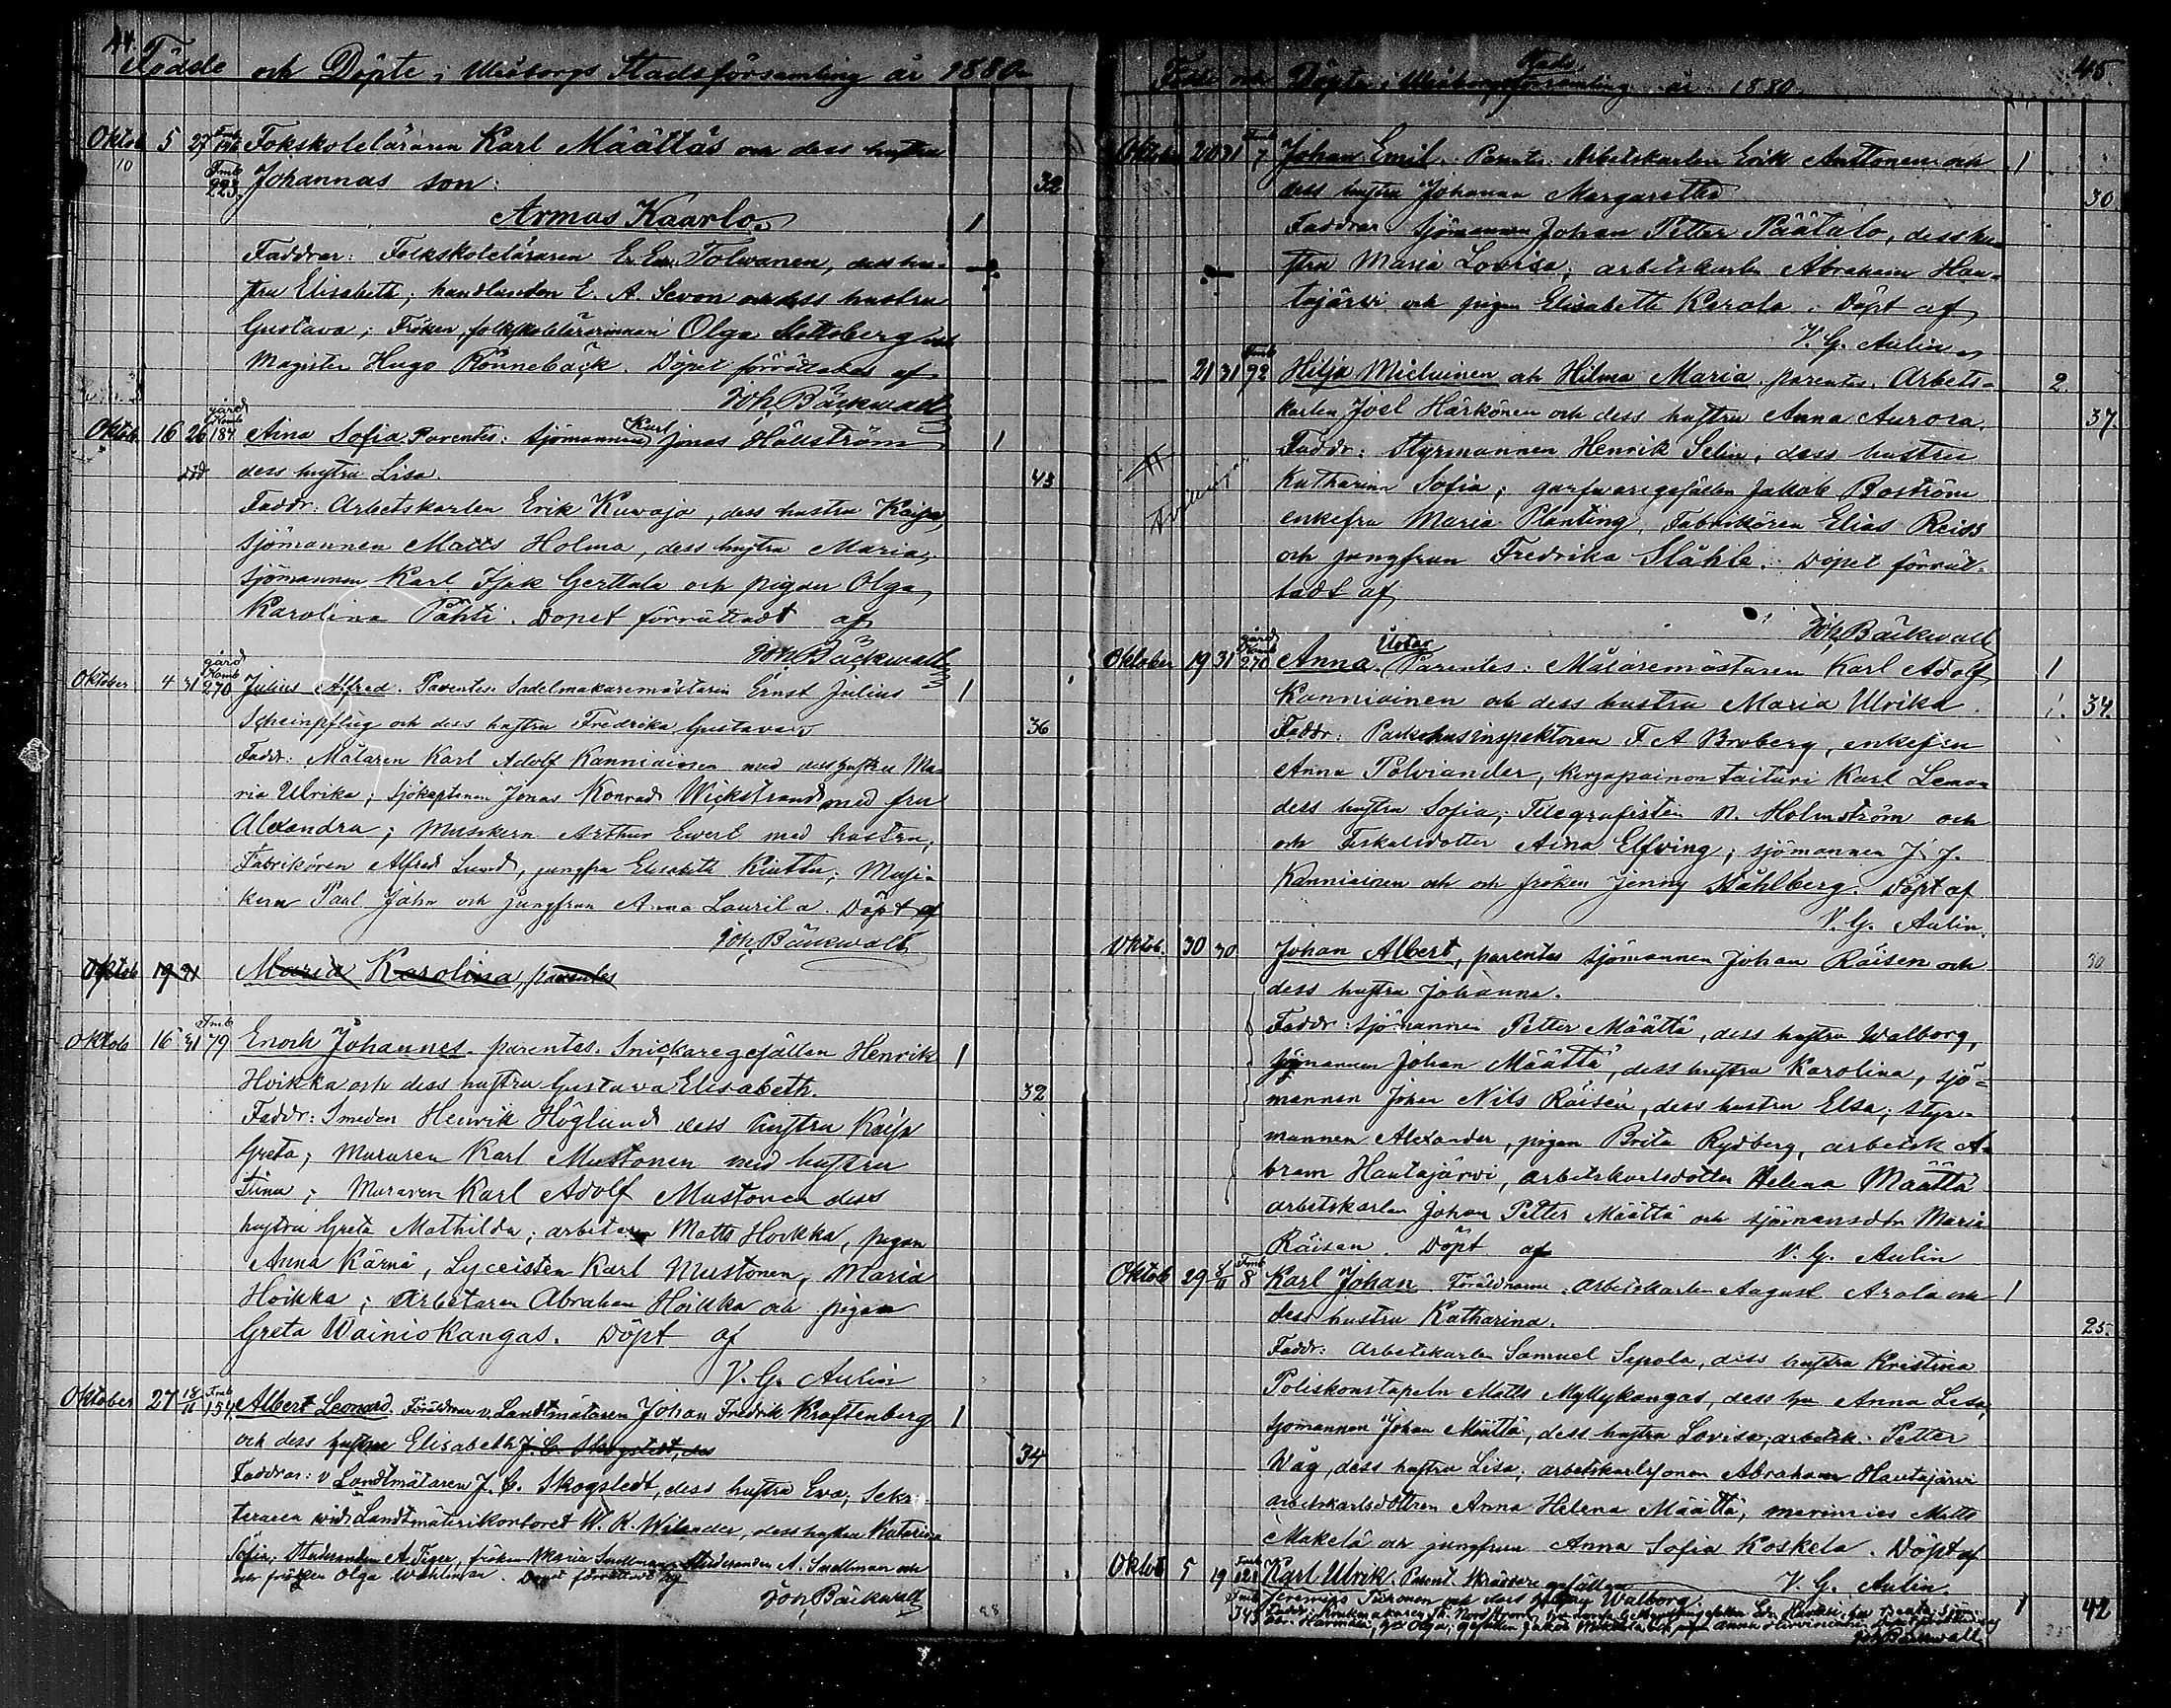 44.
Födde och Döpte i Uleåborgs Stadsförsamling år 1880
Oktob 5 27 Fmb 146 Fokskoleläraren Karl Määttäs och dess hustru
10 Fmb 223. Johannas son: 32
Armas Kaarlo. 1
Faddrar: Folkskoleläraren E. Em. Tolwanen, dess hu-
stru Elisabeth; handlanden E. A. Sevon och dess hustru
Gustava; Fröken, folkskolelärarinnan Olga
Magister Hugo Rönnebäck. Döpet förrättades af
Joh. Bäckwall
Oktob. 16 26 gård Komb 184 Aina Sofia. Parentes: Sjömannen Karl Jonas Hällström, 1
dess hustru Lisa. 43
Faddr. Arbetskarlen Erik Kuwaja, dess hustru Kaisa,
Sjömannen Matts Holma, dess hustru Maria,
Sjömannen Karl Isak Gerttula och pigan Olga
Karolina Pähti. Dopet förrättadt af
Joh. Bäckwall
Oktober 4 31 gård Komb 270 Julius Alfred. Parentes. Sadelmakaremästaren Ernst Julius 1
Scheinpflug och dess hustru Fredrika Gustava 36
Faddr: Målaren Karl Adolf Kanniainen med dess hustru Ma-
ria Ulrika; Sjökaptenen Jonas Konrad Wickstrand med fru
Alexandra; Musikern Arthur Ewert med hustru,
Fabrikören Alfred Lund, jungfru Elisabeth; Musi-
kern Paul Jahn och jungfrun Anna Laurila. Döpt af
Joh. Bäckwall
Oktob 19 31 Maria Karolina, parentes
Oktob 16 31 Fmb 79 Enoch Johannes. parentes. Snickaregesällen Henrik 1
Hoikka och dess hustru Gustava Elisabeth. 32
Faddr: Smeden Henrik Höglund dess hustru Kaisa
Greta; Muraren Karl Mustonen med hustru
Stina; Muraren Karl Adolf Mustonen dess
hustru Greta Mathilda; arbetaren Matts Hoikka, pigan
Anna Kärnä, Lyceisten Karl Mustonen, Maria
Hoikka; Arbetaren Abraham Hoikka och pigan
Greta Wainiokangas. Döpt af
V. G. Aulin
Oktober 27 18/11 Fmb 154 Albert Leonard. Föräldrar v. Landtmätaren Johan Fredrik Kraftenberg 1
och dess hustru Elisabeth J. C. Skogstedt, dess 34
Faddrar: v Landtmätaren J. C. Skogstedt, dess hustru Eva; Sekre-
teraren vid Landtmäterikontoret W. K. Wilander, dess hustru Katarina
Sofia, Studeranden A. Tiger, fröken Maria Snellman, Studeranden A. Snellman och
fröken Olga. Dopet förrättadt af
Joh. Bäckwall
45.
Födde och Döpte i Uleåborgs Stads församling år 1880.
Oktober 20 31 Fmb 7 Johan Emil. Parentes: Arbetskarlen Erik Anttonen och 1
dess hustru Johanna Margaretha 30
Faddrar Sjömannen Johan Petter Päätalo, dess hu-
stru Maria Lovisa; arbetskarlen Abraham Hau-
tajärvi och pigan Elisabeth Karola. Döpt af
V. G. Aulin
21 31 Fmb 92 Hilja Mielvinen och Hilma Maria. parentes. Arbets- 2
karlen Joel Härkönen och dess hustru Anna Aurora. 37.
Faddr: Styrmannen Henrik Selin, dess hustru
Katharina Sofia; garfvaregesällen Jakob Boström
enkefru Maria Planting, Fabrikören Elias Reiss
och jungfrun Fredrika Ståhle. Döpet förrät-
tadt af
Joh. Bäckwall
Oktober 19 31 gård Komb 270 Anna. Parentes: Målaremästaren Karl Adolf 1
Kanniainen och dess hustru Maria Ulrika. 1. 34.
Faddr: Packhusinspektoren F. A. Broberg, enkefru
Anna Polviander, kirjapainon taituri Karl Leman
dess hustru Sofia; Telegrafisten N. Holmström och
och Fiskalsdotter Aina Elfving; Sjömannen J. J.
Kanniainen och och fröken Jenny Ståhlberg. Döpt af
V. G. Aulin.
Oktob. 30 30 Johan Albert, parentes Sjömannen Johan Räisen och 30
dess hustru Johanna.
Faddr: Sjömannen Petter Määttä, dess hustru Walborg,
Sjömannen Johan Määttä, dess hustru Karolina, sjö-
mannen Johan Nils Räisen, dess hustru Elsa; Styr-
mannen Alexander, pigan Brita Rydberg, arbetsk. A-
bram Hautajärvi, arbetskarlsdotter Helena Määttä
arbetskarlen Johan Petter Määttä och sjömansdtr Maria
Räisen. Döpt af V. G. Aulin
Oktob 29 8/11 Fmb 8 Karl Johan. Föräldrarne: arbetskarlen August Arola och 1
dess hustru Katharina. 25.
Faddr: Arbetskarlen Samuel Sepola, dess hustru Kristina
Poliskonstapeln Matts Myllykangas, dess hu Anna Lisa,
Sjömannen Johan Määttä, dess hustru Lovisa, arbetsk. Petter
Wåg, dess hustru Lisa; arbetskarlssonen Abraham Hautajärvi
arbetskarlsdottren Anna Helena Määttä, merimies Matts
Makelä och jungfrun Anna Sofia Koskela. Döpt af
V. G. Aulin
Oktob 5 19 Fmb 121 Karl Ulrik. Parent. Skräddaregesällen
Fmb 343 Jeremias Tuhonen och dess hustru Walborg. 1 42
Joh. Bäckwall